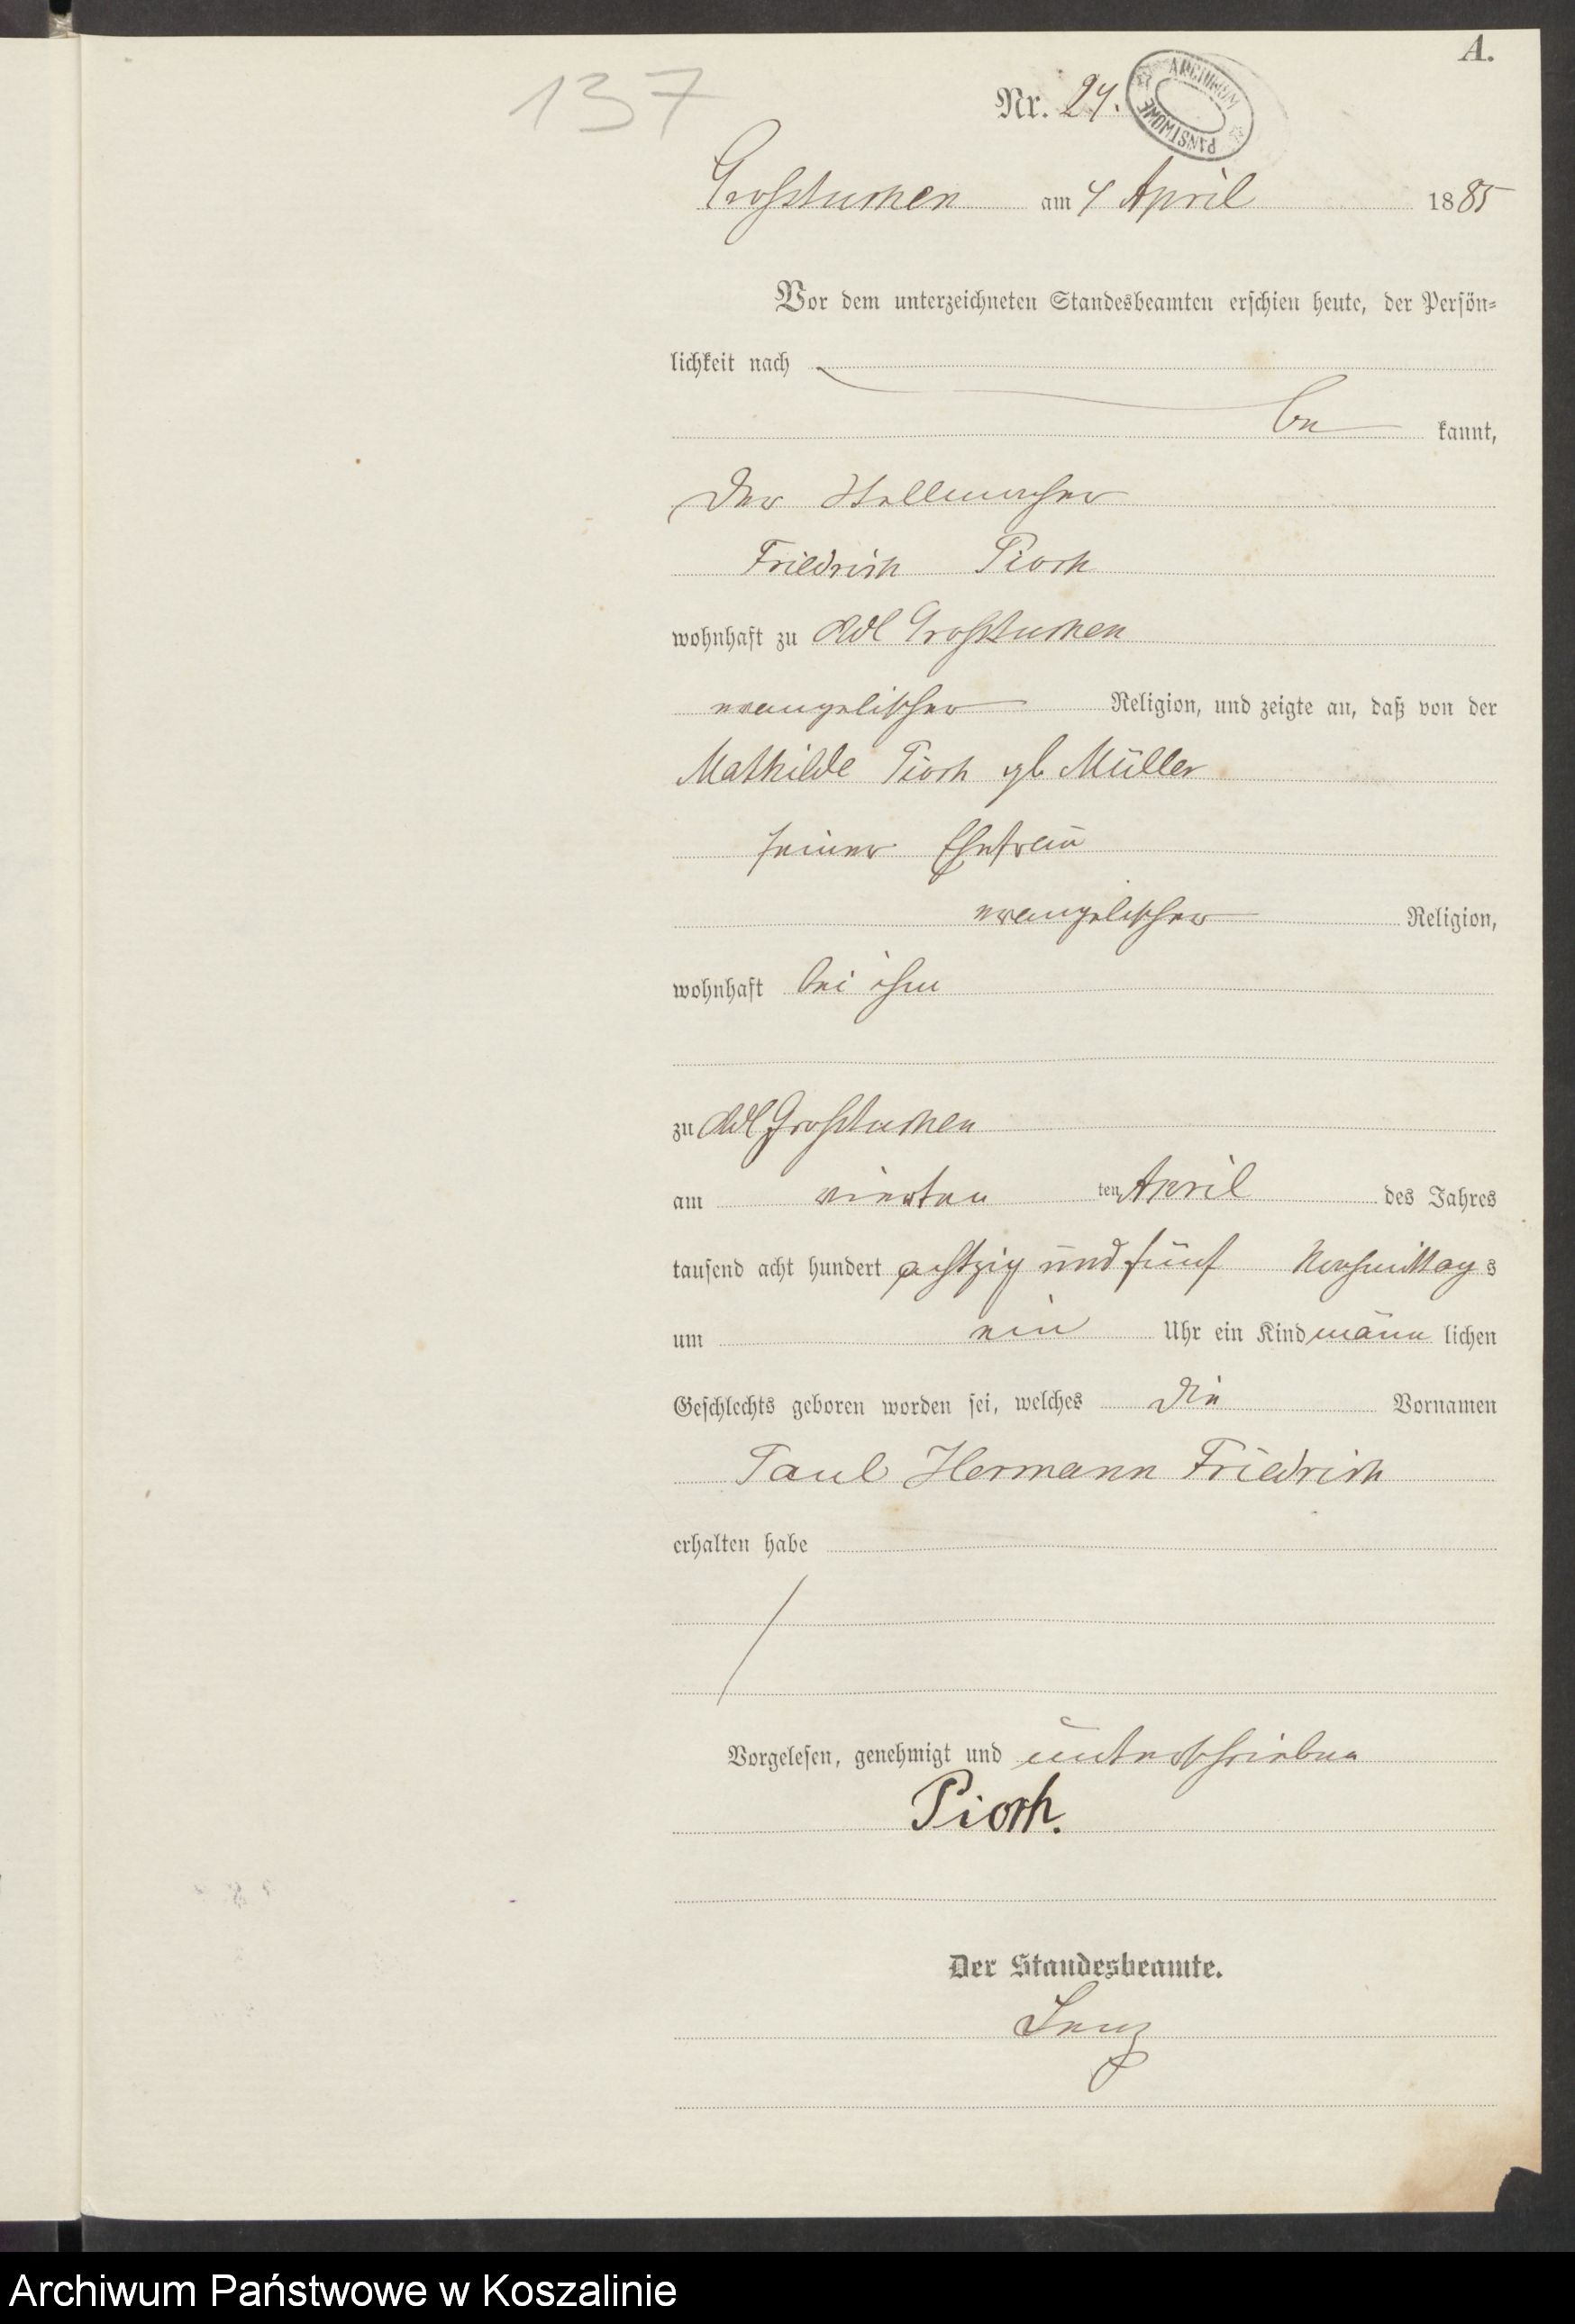 A.
137
Nr. 24.
ARCHIWUM
PAŃSTWOWE
Grosstuchen am 4 April 1885
Vor dem unterzeichneten Standesbeamten erschien heute, der Persön-
lichkeit nach
be kannt,
der Stellmacher
Friedrich Pioch
wohnhaft zu Adl Grosstuchen
evangelischer Religion, und zeigte an, daß von der
Mathilde Pioch gb Müller
seiner Ehefrau
evangelischer Religion,
wohnhaft bei ihm
zu Adl Grosstuchen
am vierten ten April des Jahres
tausend acht hundert achtzig und fünf Nachmittag s
um ein Uhr ein Kind männ lichen
Geschlechts geboren worden sei, welches die Vornamen
Paul Hermann Friedrich
erhalten habe
Vorgelesen, genehmigt und unterschrieben
Pioch.
Der Standesbeamte.
Lenz
Archiwum Państwowe w Koszalinie